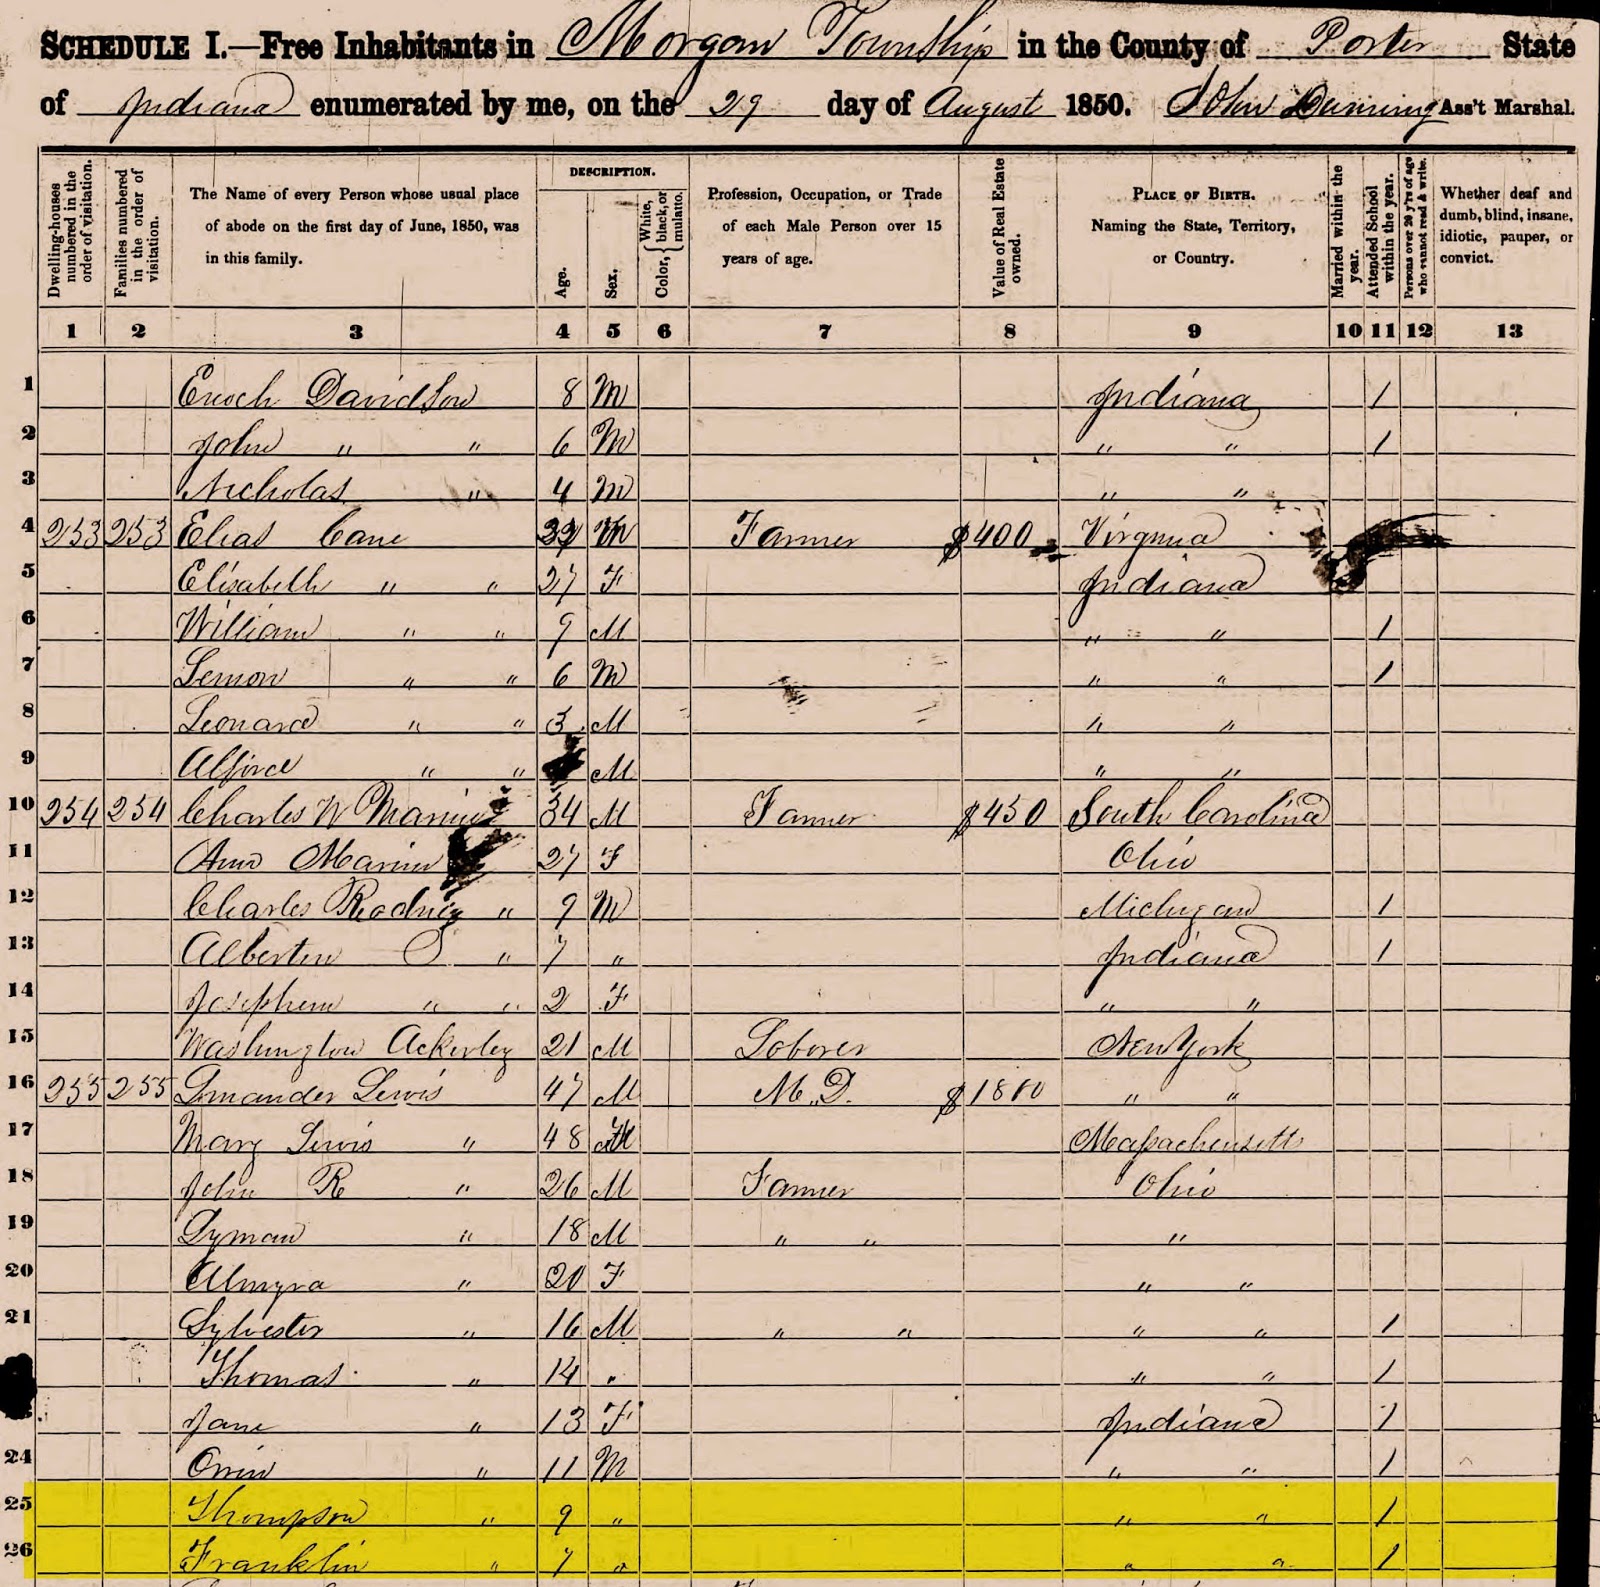 SCHEDULE I.—Free Inhabitants in Morgan Township in the County of Porter State
of Indiana enumerated by me, on the 29 day of August 1850. John Dunning Ass't Marshal.
Dwelling-houses numbered in the order of visitation.
Families numbered in the order of visitation.
The Name of every Person whose usual place of abode on the first day of June, 1850, was in this family.
DESCRIPTION.
Age.
Sex.
Color, { White, black, or mulatto.
Profession, Occupation, or Trade of each Male Person over 15 years of age.
Value of Real Estate owned.
PLACE OF BIRTH. Naming the State, Territory, or Country.
Married within the year.
Attended School within the year.
Persons over 20 y'rs of age who cannot read & write.
Whether deaf and dumb, blind, insane, idiotic, pauper, or convict.
1 2 3 4 5 6 7 8 9 10 11 12 13
1 Enoch Davidson 8 M Indiana 1
2 John " " 6 M " " 1
3 Nicholas " 4 M " "
4 253 253 Elias Cane M Farmer $400 Virginia
5 Elisabeth " " 27 F Indiana
6 William " " 9 M " " 1
7 Lemon " " 6 M " " 1
8 Leonard " " 3 M " "
9 " " M " "
10 254 254 Charles W 34 M Farmer $450 South Carolina
11 Ann 27 F Ohio
12 Charles Rodney " 9 M Michigan 1
13 " 7 " Indiana 1
14 " " 2 F " "
15 Washington Ackerley 21 M Laborer New York
16 255 255 Lewis 47 M M.D. $1800 " "
17 Mary Lewis " 48 Massachusetts
18 John R " 26 M Farmer Ohio
19 Lyman " 18 M " " "
20 Almyra " 20 F " "
21 Sylvester " 16 M " " " " 1
Thomas " 14 " " " 1
Jane " 13 F Indiana 1
24 Orrin " 11 M " " 1
25 Thompson " 9 " " " 1
26 Franklin " 7 " " " 1